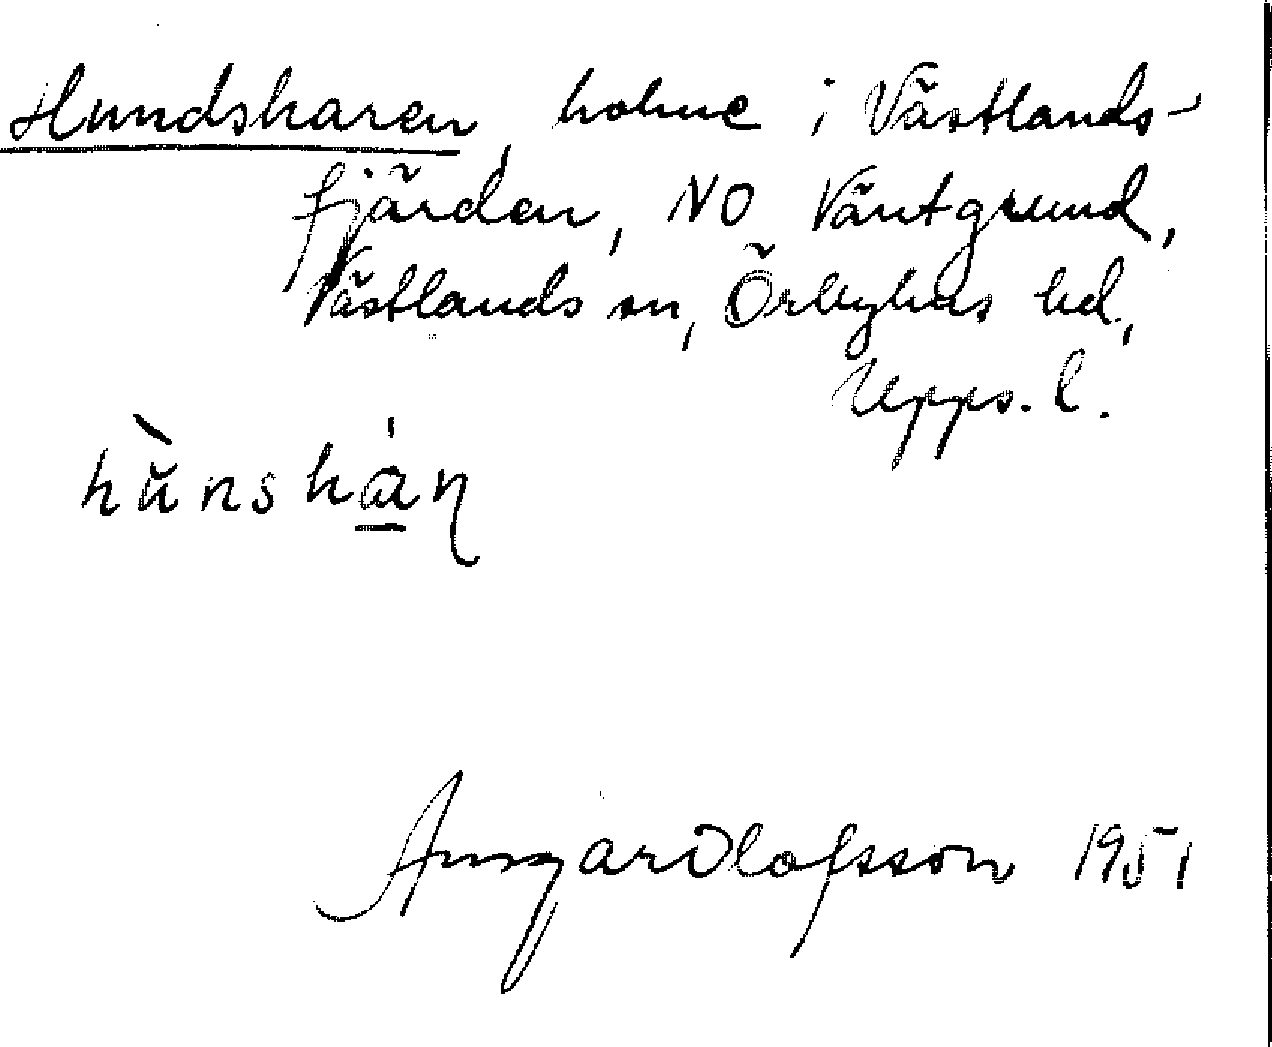 Hundskaren, holme i Västlands-
fjärden, NOVäntgrund,
Västlands sn, Örbyhus hd,
Upps. l.
hùnskán
Ansgar Olofsson 1951